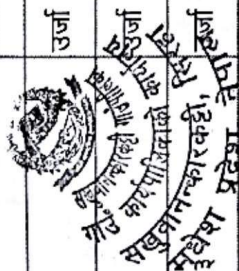 उर्जा
उर्जा
उर्जा
सखुवानान्कारकट्टी गाउँपालिका
गाउँ कार्यपालिकाको कार्यालय
सखुवानान्कारकट्टी, सिरहा
मधेश प्रदेश, नेपाल